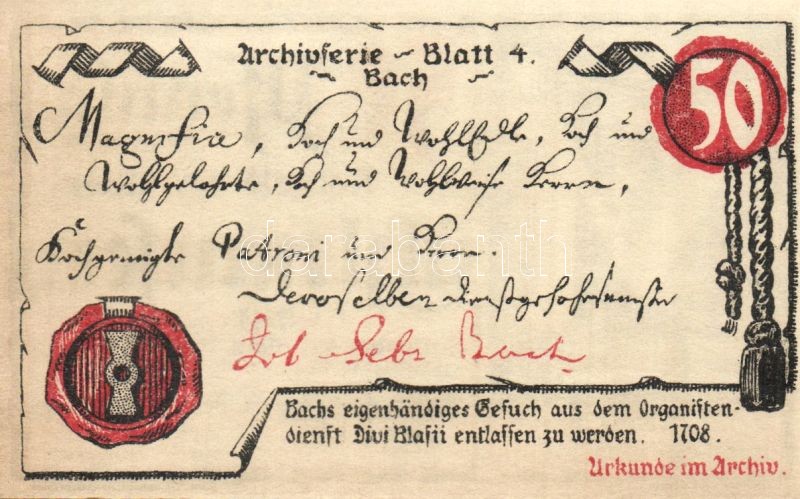 Archivserie - Blatt 4.
Bach
50
Magnifice, Hoch und WohlEdle, Hoch und
Wohlgelahrte, Hoch und Wohlweise Herren,
Hochgeneigte Patroni und Herren.
Deroselben dienstgehorsamster
Joh Sebt Bach
Bachs eigenhändiges Gesuch aus dem Organisten-
dienst Divi Blasii entlassen zu werden. 1708.
Urkunde im Archiv.
darabanth